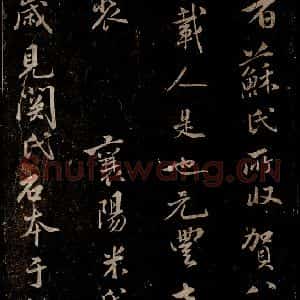 者蘇氏所收賀八
載人是也元豐
襄陽米
歲見関氏石本于
Shufawang.CN